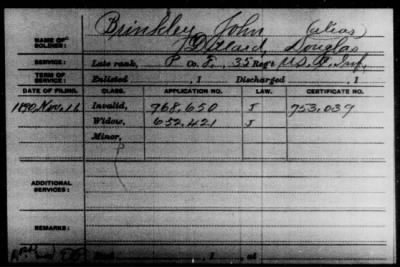 Brinkley, John (alias)
NAME OF SOLDIER: Dillard, Douglas
SERVICE: Late rank, P Co. F, 35 Reg't U.S.C. Inf.
TERM OF SERVICE: Enlisted , 1 Discharged , 1
DATE OF FILING. CLASS. APPLICATION NO. LAW. CERTIFICATE NO.
1890 Nov. 16 Invalid, 768,650 J 753,039
Widow, 652,421 J
Minor,
ADDITIONAL SERVICES:
REMARKS:
, 1 , at